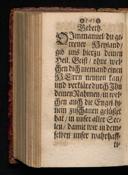 Gebeth.
O Immanuel du ge-
treuer Heyland/
gib uns hierzu deinen
Heil. Geist/ ohne wel-
chen dich niemand einen
HErrn nennen kan/
und verkläre durch Ihn
deinen Nahmen/ in wel-
chen auch die Engel
zuschauen gelüstet
hat/ in unser aller See-
len/ damit wir in dem-
selben unser wahrhaff-